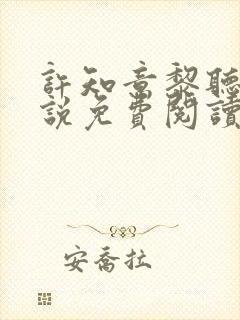 許知意黎聽
說免費閱讀
安喬拉